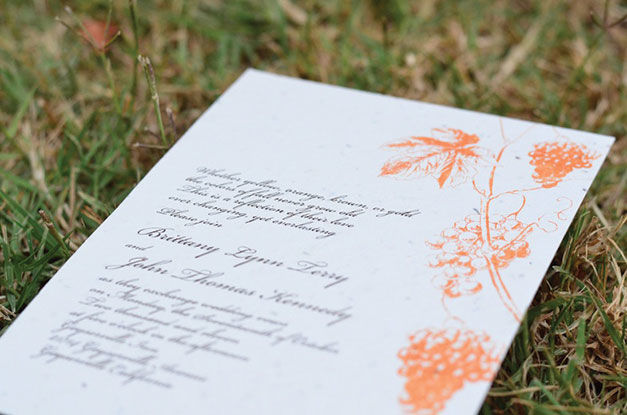 Whether yellow, orange, brown, or gold
the colors of fall never grow old
This is a reflection of their love
ever changing, yet everlasting
Please join
Brittany Lynn Terry
and
John Thomas Kennedy
as they exchange wedding vows
on Monday, the of October
Two thousand and
at five o'clock in the afternoon
California